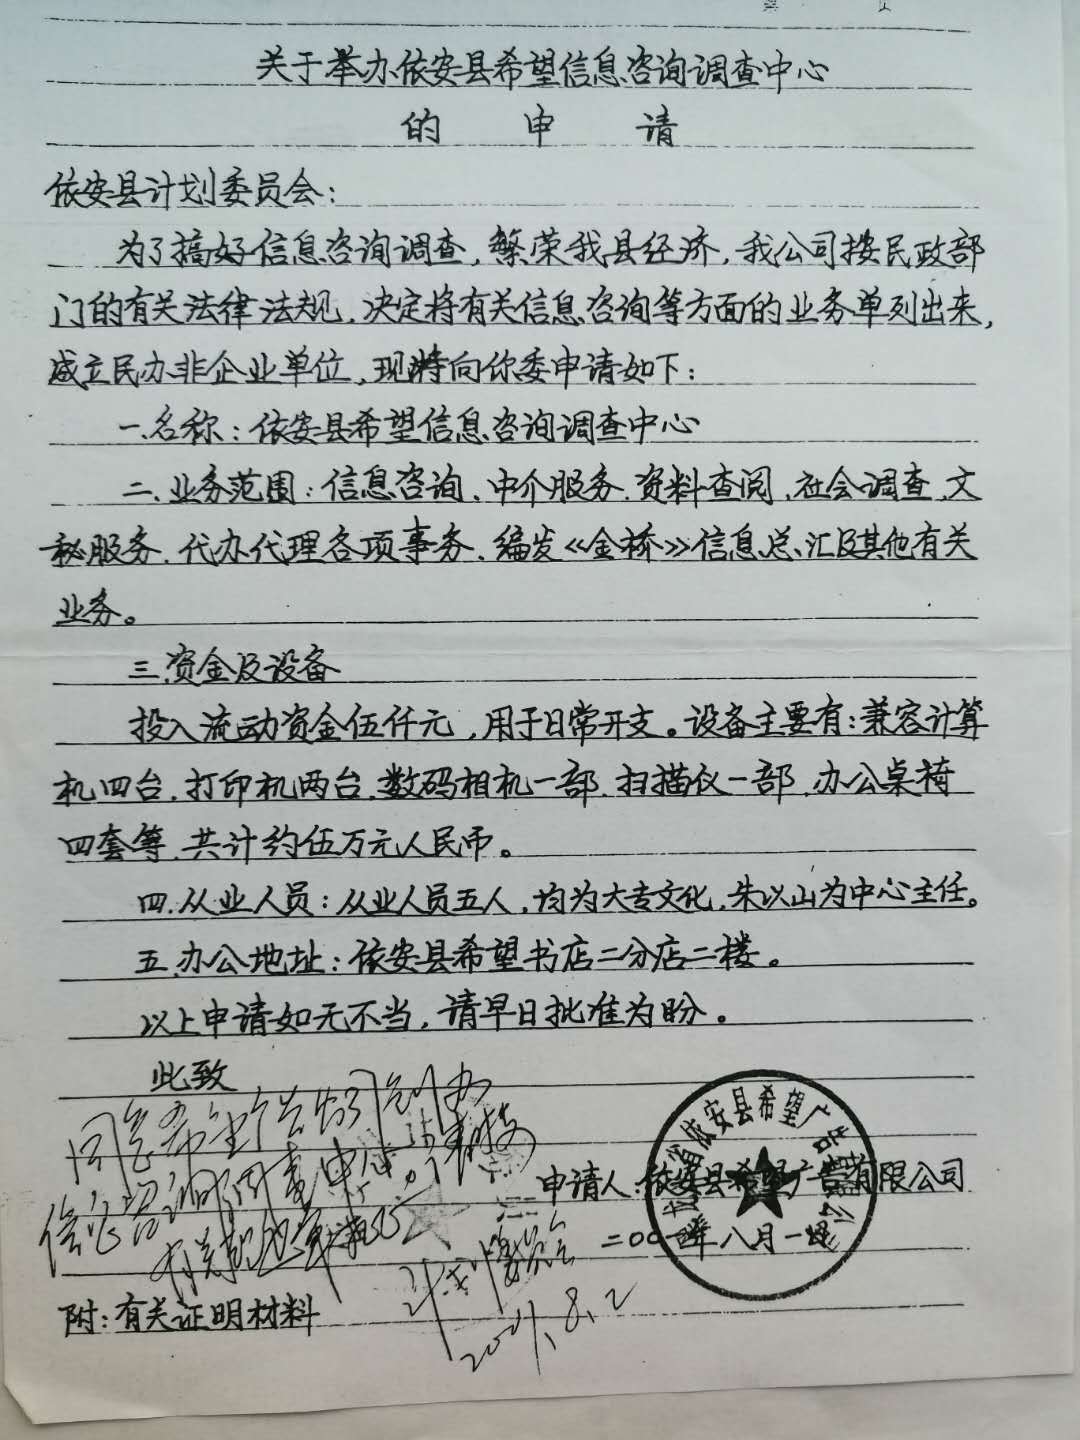 关于举办依安县希望信息咨询调查中心
的 申 请
依安县计划委员会：
为了搞好信息咨询调查，繁荣我县经济，我公司按民政部
门的有关法律法规，决定将有关信息咨询等方面的业务单列出来，
成立民办非企业单位，现将向你委申请如下：
一.名称：依安县希望信息咨询调查中心
二.业务范围：信息咨询、中介服务、资料查阅、社会调查、文
秘服务、代办代理各项事务、编发《金桥》信息总汇及其他有关
业务。
三.资金及设备
投入流动资金伍仟元，用于日常开支。设备主要有：兼容计算
机四台、打印机两台、数码相机一部、扫描仪一部、办公桌椅
四套等、共计约伍万元人民币。
四.从业人员：从业人员五人，均为大专文化，朱以山为中心主任。
五.办公地址：依安县希望书店二分店二楼。
以上申请如无不当，请早日批准为盼。
此致
同意希望广告公司创办
信息咨询调查中心。请按
有关规定执行
计划委员会
2001.8.2
申请人：依安县希望广告有限公司
二00一年八月一日
依安县希望广告有限公司
附：有关证明材料